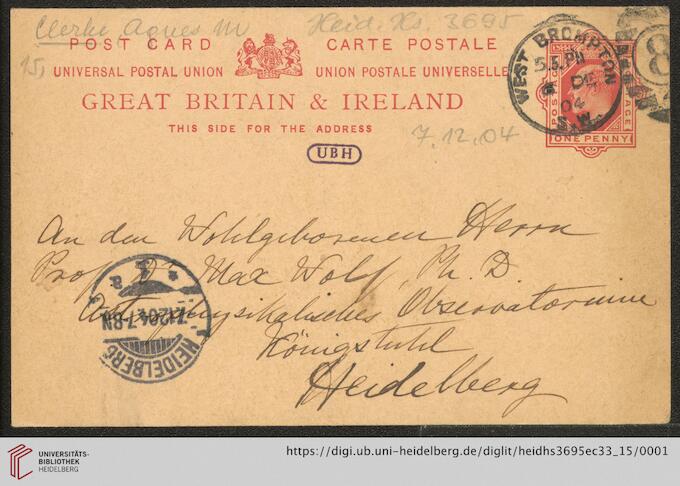 Clerke Agnes M Heid. Hs. 3695
15,
POST CARD CARTE POSTALE
UNIVERSAL POSTAL UNION UNION POSTALE UNIVERSELLE
GREAT BRITAIN & IRELAND
THIS SIDE FOR THE ADDRESS
7.12.04
UBH
WEST BROMPTON
5.5.PM
DE
04
S.W.
8
POSTAGE
ONE PENNY
An den Wohlgeborenen Herrn
Prof. Dr Max Wolf, Ph. D.
Astrophysikalisches Observatorium
Königstuhl
Heidelberg
7.12.04.7-8N
HEIDELBERG
UNIVERSITÄTS-
BIBLIOTHEK
HEIDELBERG
https://digi.ub.uni-heidelberg.de/diglit/heidhs3695ec33_15/0001